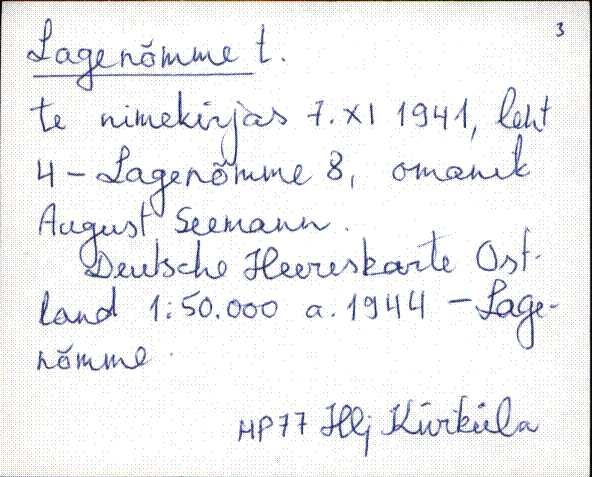 3
Lagenõmme t.
te nimekirjas 7.XI 1941, leht
4 – Lagenõmme 8, omanik
August Seemann.
Deutsche Heereskarte Ost-
land 1:50.000 a. 1944 – Lage-
nõmme.
MP77 Hlj Kürküla